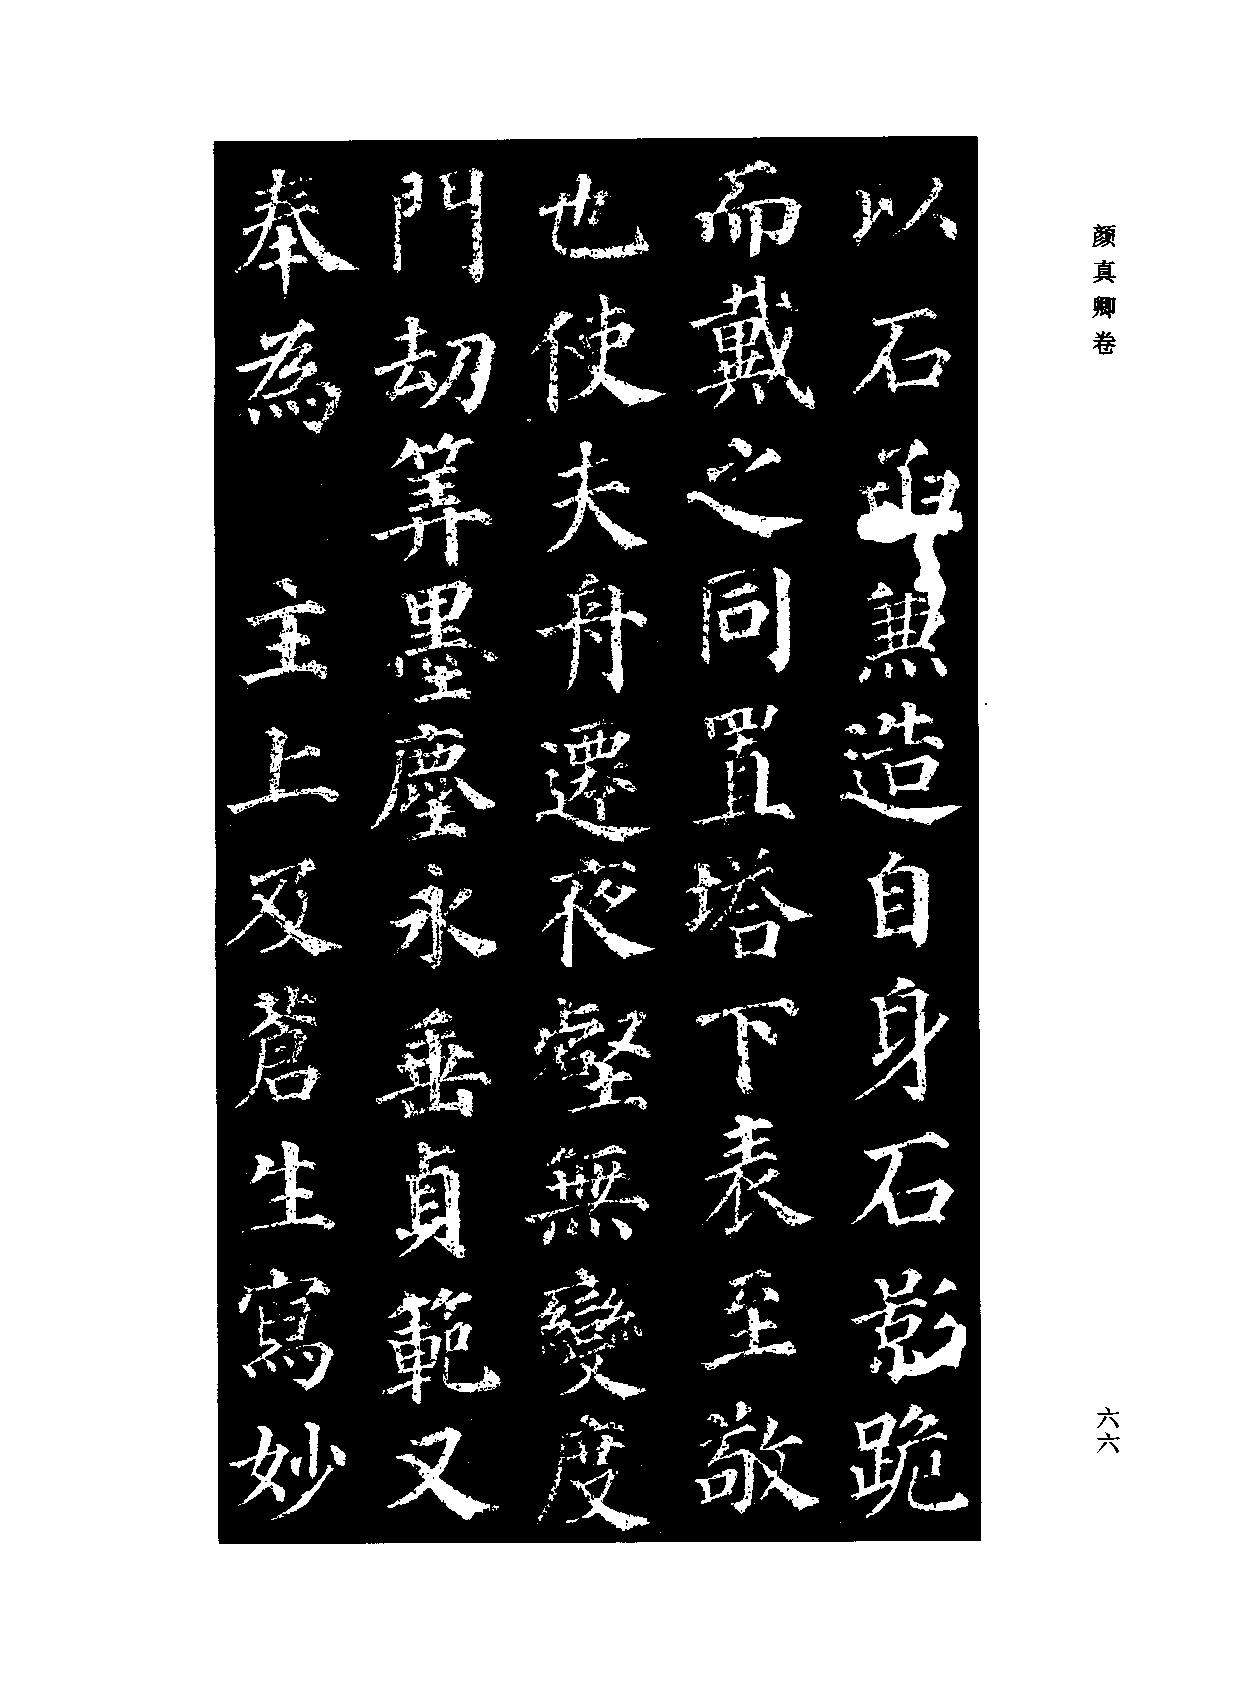 颜真卿卷
以石函兼造自身石影跪
而戴之同置塔下表至敬
也使夫舟遷夜壑無變度
門劫筭墨塵永垂貞範又
奉為 主上及蒼生寫妙
六六